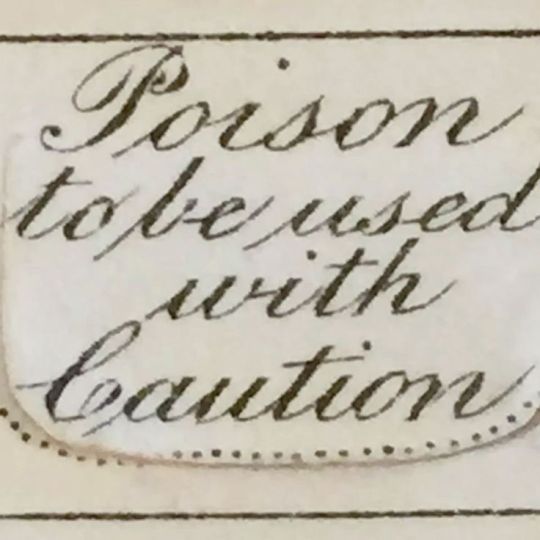 Poison
to be used
with
Caution